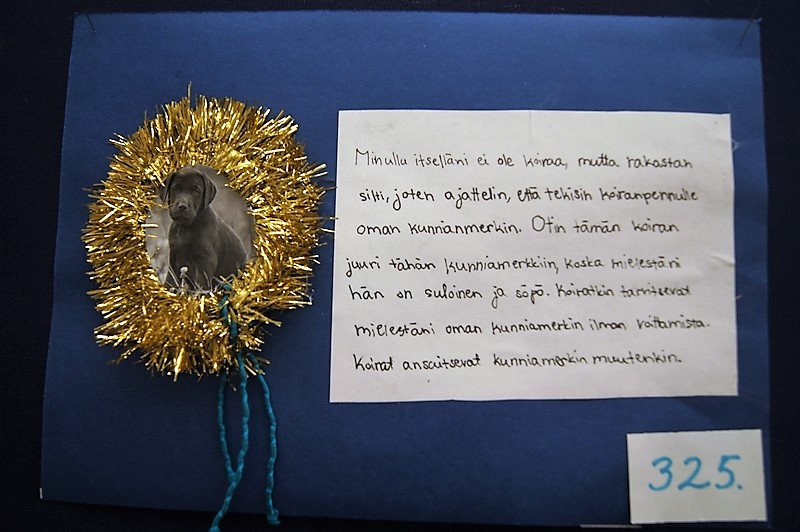 Minullu itselläni ei ole koiraa, mutta rakastan
silti, joten ajattelin, että tekisin koiranpennulle
oman kunnianmerkin. Otin tämän koiran
juuri tähän kunniamerkkiin, koska mielestäni
hän on suloinen ja söpö. Koiratkin tarvitsevat
mielestäni oman kunniamerkin ilman voittamista.
Koirat ansaitsevat kunniamerkin muutenkin.
325.